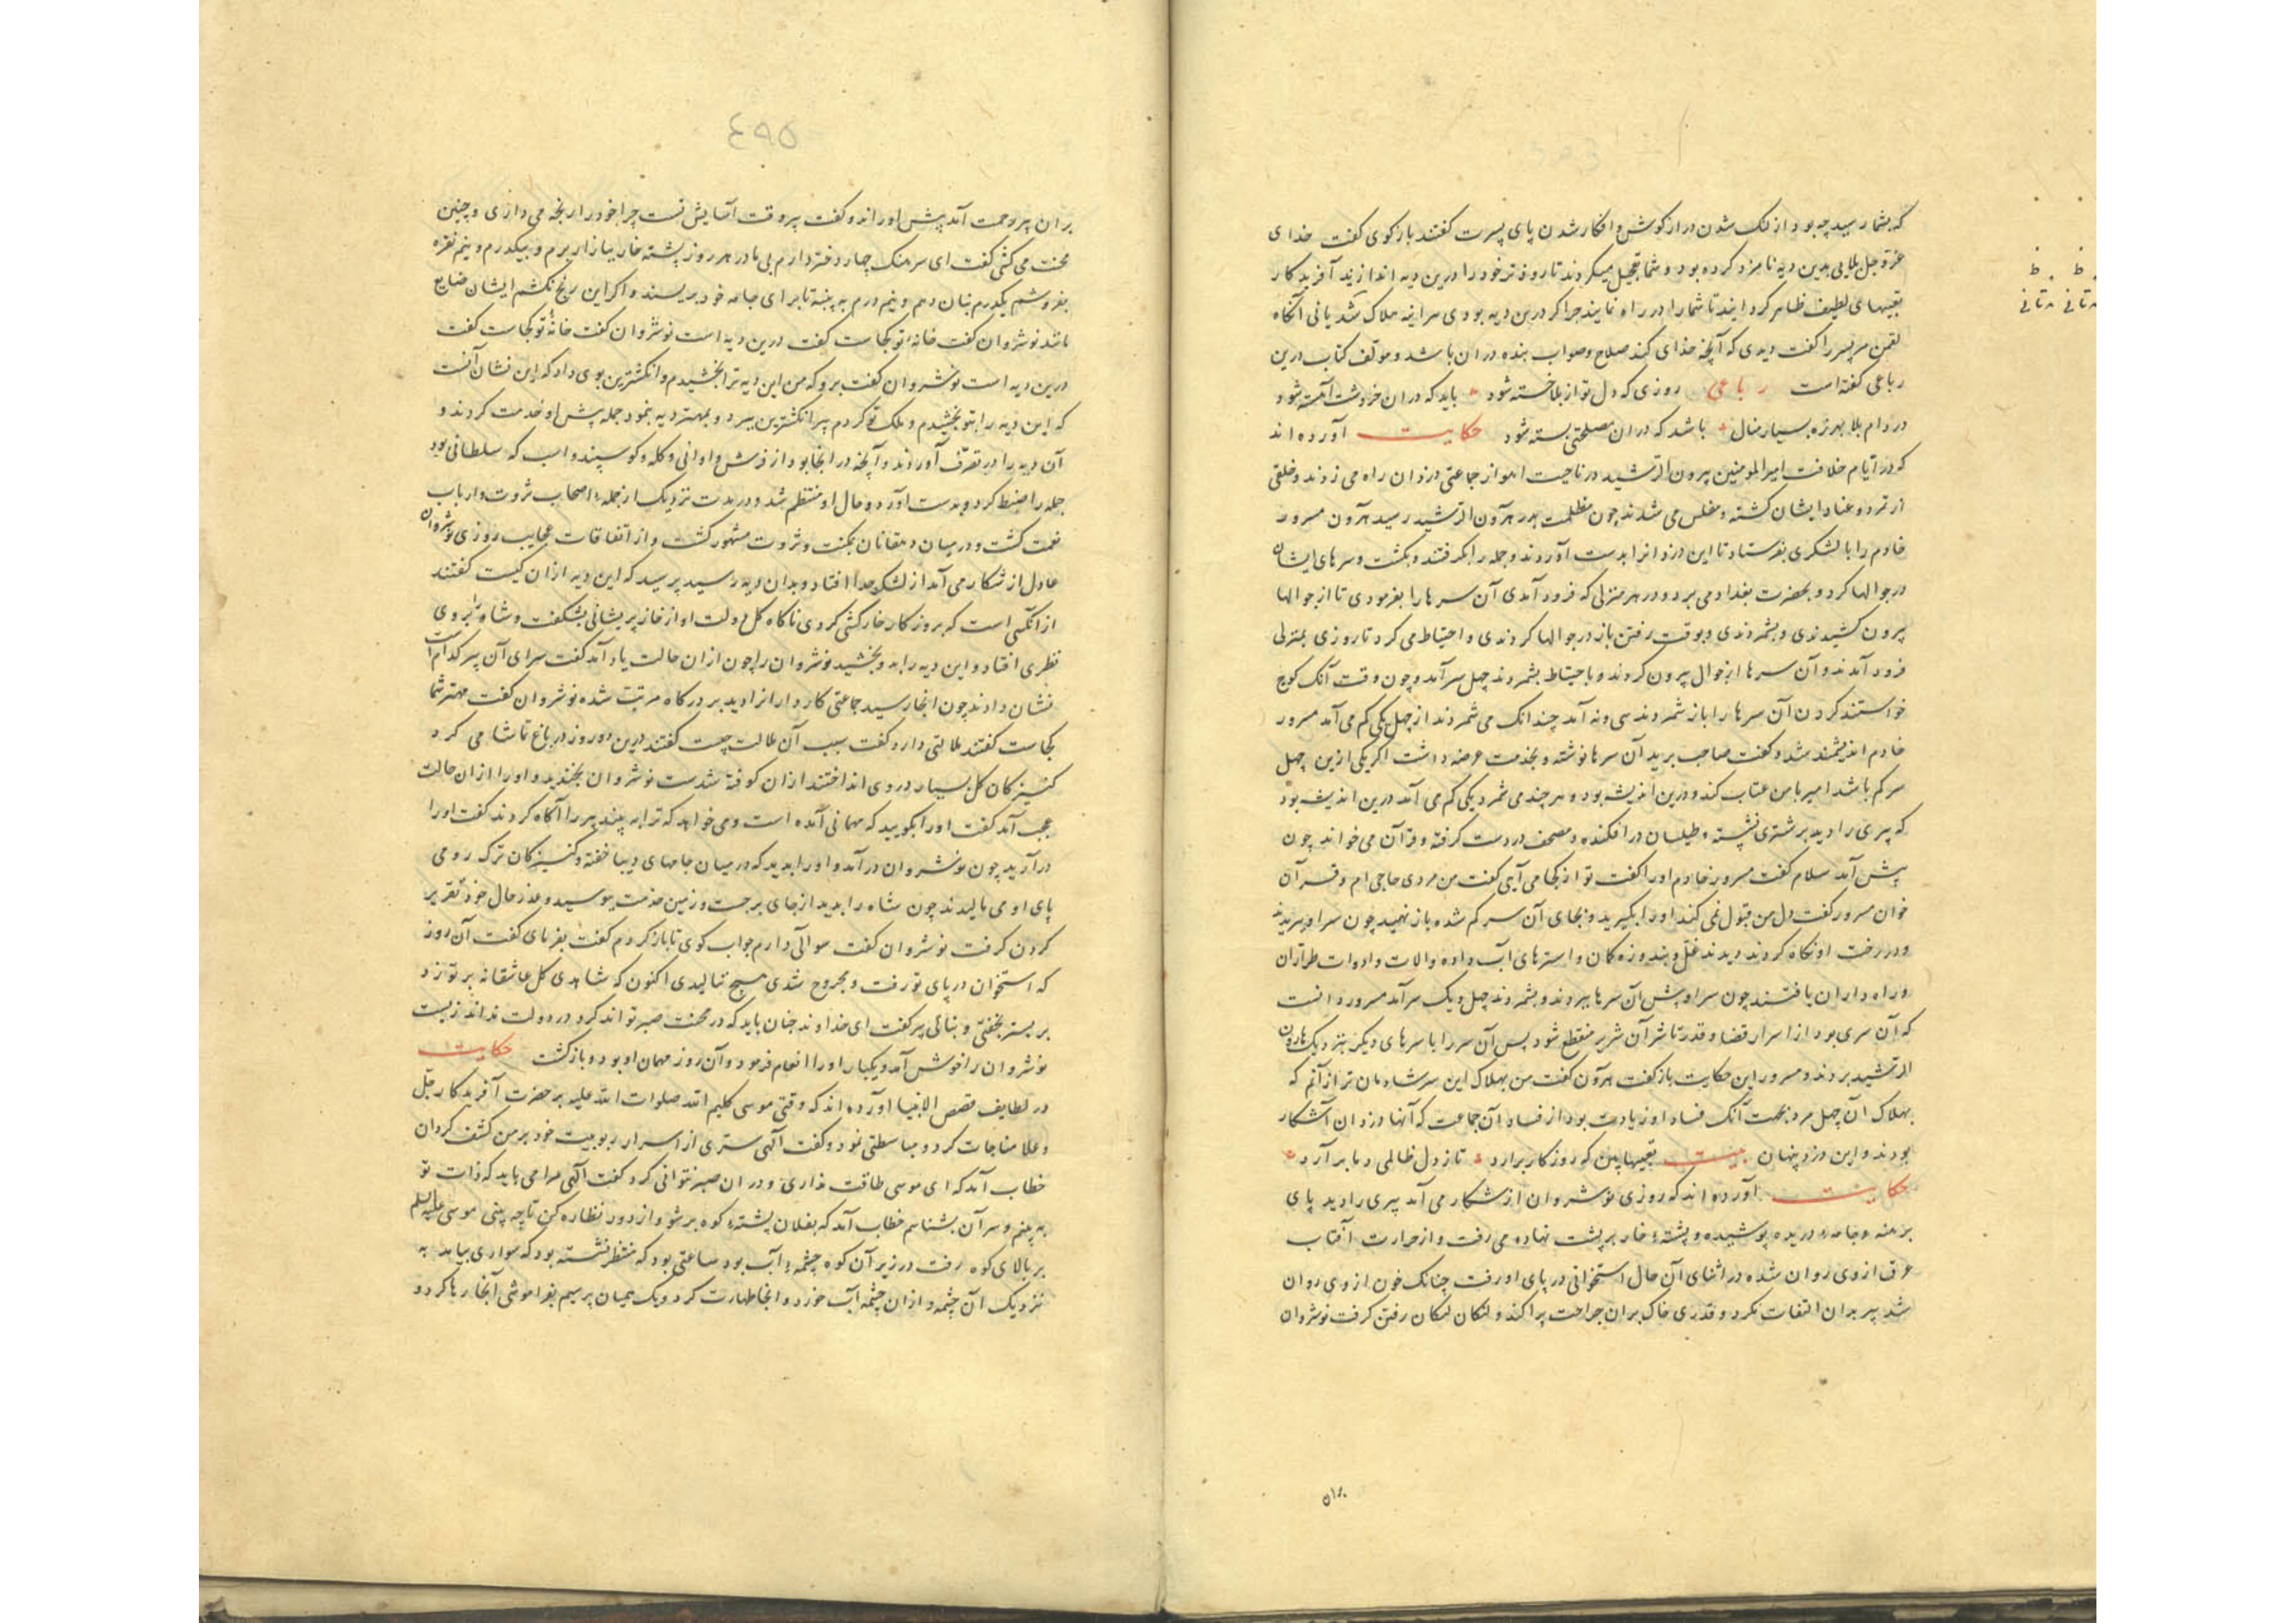 که بشما رسید چه بود از لنک شدن درازکوش و افکار شدن پای پسرت کفتند بازکوی کفت خدای
عزوجل بلایی بدین دیه نامزد کرده بود و شما تعجیل میکردند تا زودتر خود را درین دیه اندازید آفریدکار
تعبیهای لطیف ظاهر کردایند تا شما را در راه نمایند جرا اکر درین دیه بودی هراینه هلاک شدیانی آنکاه
لقمن مر پسر را کفت دیدی که آنچه خدای کند صلاح و صواب بنده دران باشد و مولف کتاب درین
رباعی کفته است رباعی روزی که دل تو از بلا خسته شود باید که دران خروشت آهسته شود
در دام بلا بهرزه بسیار منال باشد که دران مصلحتی بسته شود حکایت آورده اند
که در ایام خلافت امیرالمومنین هرون الرشید در ناحیت اهواز جماعتی دزدان راه می زدند و خلقی
از تمرد و عناد ایشان کشته و مفلس می شدند چون مظلمت بدر هرون الرشید رسید هرون مسرور
خادم را با لشکری بفرستاد تا این دزدانرا بدست آوردند و جمله را بکرفتند و بکشت و سرهای ایشان
در جوالها کرد و بحضرت بغداد می برد و در هر منزلی که فرود آمدی آن سرها را بفرمودی تا از جوالها
بیرون کشیدندی و بشمردندی و بوقت رفتن باز در جوالها کردندی و احتیاط می کرد تا روزی بمنزلی
فرود آمدند و آن سرها از جوال بیرون کردند و باحتیاط بشمردند چهل سر آمد و چون وقت آنک کوچ
خواستند کردن آن سرها را باز شمردند سی و نه آمد چندانک می شمردند از چهل یکی کم می آمد مسرور
خادم اندیشمند شد و کفت صاحب برید آن سرها نوشته و بخدمت عرضه داشت اکر یکی ازین چهل
سر کم باشد امیر با من عتاب کند و درین اندیشه بود و هر چند می شمرد یکی کم می آمد درین اندیشه بود
که پیری را دید بر شتری نشسته و طیلسان در افکنده و مصحف در دست کرفته و قرآن می خواند چون
پیش آمد سلام کفت مسرور خادم او را کفت تو از کجا می آیی کفت من مردی حاجی ام و قرآن
خوان مسرور کفت دل من قبول نمی کند او را بکیرید و بجای آن سر کم شده باز نهید چون سر او ببریدند
و در رخت او نکاه کردند دیدند غل و بند و زه کمان و استرهای آب داده و الات و ادوات طراران
و راه داران یافتند چون سر او پیش آن سرها ببردند و بشمردند چهل و یک سر آمد مسرور دانست
که آن سری بود از اسرار قضا و قدر تا شر آن شریر منقطع شود پس آن سر را با سرهای دیکر بنزدیک هارون
الرشید بردند و مسرور این حکایت باز کفت هرون کفت من بهلاک این سر شادمان تر از آنم که
بهلاک آن چهل مرد بجهت آنک فساد او زیادت بود از فساد آن جماعت که آنها دزدان آشکار
بودند و این دزد پنهان بیت تعبیها بین که روزکار برآرد تا ز دل ظالمی دمار برآرد
حکایت آورده اند که روزی نوشروان از شکار می آمد پیری را دید پای
برهنه و جامه دریده پوشیده و پشته خار بر پشت نهاده می رفت و از حرارت آفتاب
عرق از وی روان شده در اثنای آن حال استخوانی در پای او رفت چنانک خون از وی روان
شد پیر بدان التفات نکرد و قدری خاک بران جراحت پراکند و لنکان لنکان رفتن کرفت نوشروان
بران
۴۹۵
بران پیر رحمت آمد پیش او راند و کفت پیرو قت آسایش تست چرا خود را رنجه می داری و چنین
محنت می کشی کفت ای سرهنک چهار دختر دارم بی مادر هر روز پشته خار ببازار برم و بیکدرم و نیم نقره
بفروشم یکدرم بنان دهم و نیم درم به پنبه تا برای جامه خود بریسند و اکر این رنج نکشم ایشان ضایع
مانند نوشروان کفت خانه تو کجاست کفت درین دیه است نوشروان کفت خانه تو کجاست کفت
درین دیه است نوشروان کفت برو که من این دیه ترا بخشیدم و انکشترین بوی داد که این نشان آنست
که این دیه را بتو بخشیدم و ملک تو کردم پیر انکشترین ببرد و بمهتر دیه نمود جمله پیش او خدمت کردند و
آن دیه را در تصرف آوردند و آنچه در انجا بود از فرش و اوانی و کله و کوسپند و اسب که سلطانی بود
جمله را ضبط کرد و بدست آورد و حال او منتظم شد و در مدت نزدیک از جمله اصحاب ثروت و ارباب
نعمت کشت و در میان دهقانان بمکنت و ثروت مشهور کشت و از اتفاقات عجایب روزی نوشروان
عادل از شکار می آمد از لشکر جدا افتاد و بدان دیه رسید پرسید که این دیه ازان کیست کفتند
ازانکسی است که بروزکار خارکشی کردی ناکاه کل دولت او از خار پریشانی بشکفت و شاه را بر وی
نظری افتاد و این دیه را بدو بخشید نوشروان را چون ازان حالت یاد آمد کفت سرای آن پیر کدام است
نشان دادند چون انجا رسید جماعتی کاردارانرا دید بر درکاه مرتب شده نوشروان کفت مهتر شما
کجاست کفتند ملالتی دارد کفت سبب آن ملالت چیست کفتند درین دو روز در باغ تماشا می کرد
کنیزکان کل بسیار در وی انداختند ازان کوفته شدست نوشروان بخندید و او را ازان حالت
عجب آمد کفت او را بکویید که مهمانی آمده است و می خواهد که ترا به بیند پیر را آکاه کردند کفت او را
درآرید چون نوشروان درآمد و او را بدید که در میان جامهای دیبا خفته و کنیزکان ترک رومی
پای او می مالیدند چون شاه را بدید از جای برجست و زمین خدمت ببوسید و عذر حال خود تقریر
کردن کرفت نوشروان کفت سوالی دارم جواب کوی تا باز کردم کفت بفرمای کفت آن روز
که استخوان در پای تو رفت و مجروح شدی هیچ ننالیدی اکنون که شاهدی کل عاشقانه بر تو زد
بر بستر بخفتی و بنالی پیر کفت ای خداوند چنان باید که در محنت صبر تواند کرد در دولت نداند زیست
نوشروان را خوش آمد و یکبار او را انعام فرمود و آن روز مهمان او بود و بازکشت حکایت
در لطایف قصص الانبیا آورده اند که وقتی موسی کلیم الله صلوات الله علیه بر حضرت آفریدکار جل
و علا مناجات کرد و مباسطتی نمود و کفت آلهی سری از اسرار ربوبیت خود بر من کشف کردان
خطاب آمد که ای موسی طاقت نداری و دران صبر نتوانی کرد کفت آلهی مرا می باید که ذات تو
به بینم و سر آن بشناسم خطاب آمد که بفلان پشته کوه بر شو و از دور نظاره کن تا چه بینی موسی علیه السلم
بر بالای کوه رفت در زیر آن کوه چشمه آب بود ساعتی بود که منتظر نشسته بود که سواری بیامد به
نزدیک آن چشمه و ازان چشمه آب خورد و انجا طهارت کرد و یک همیان پر سیم بفراموشی آنجا رها کرد و